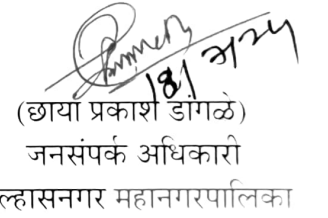 (छाया प्रकाश डांगळे)
जनसंपर्क अधिकारी
ल्हासनगर महानगरपालिका